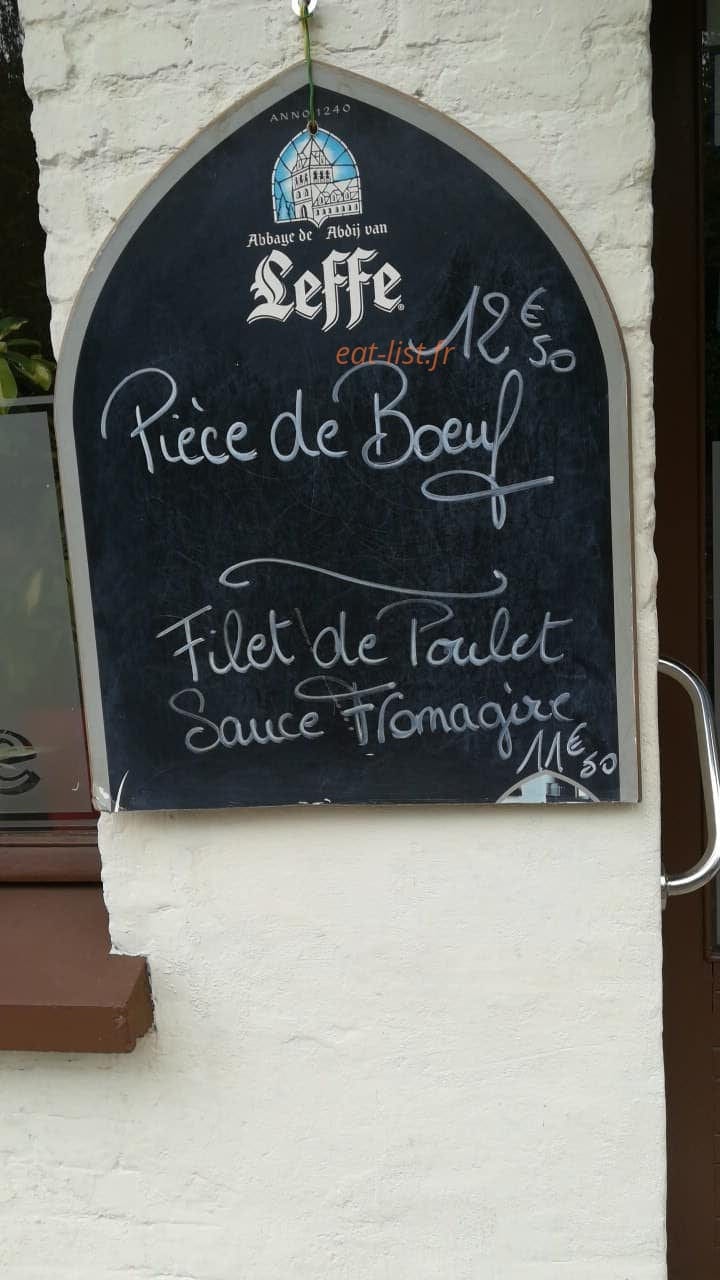 ANNO 1240
Abbaye de Abdij van
Leffe
12€50
eat-list.fr
Pièce de Boeuf
Filet de Poulet
Sauce Fromagère
11€50